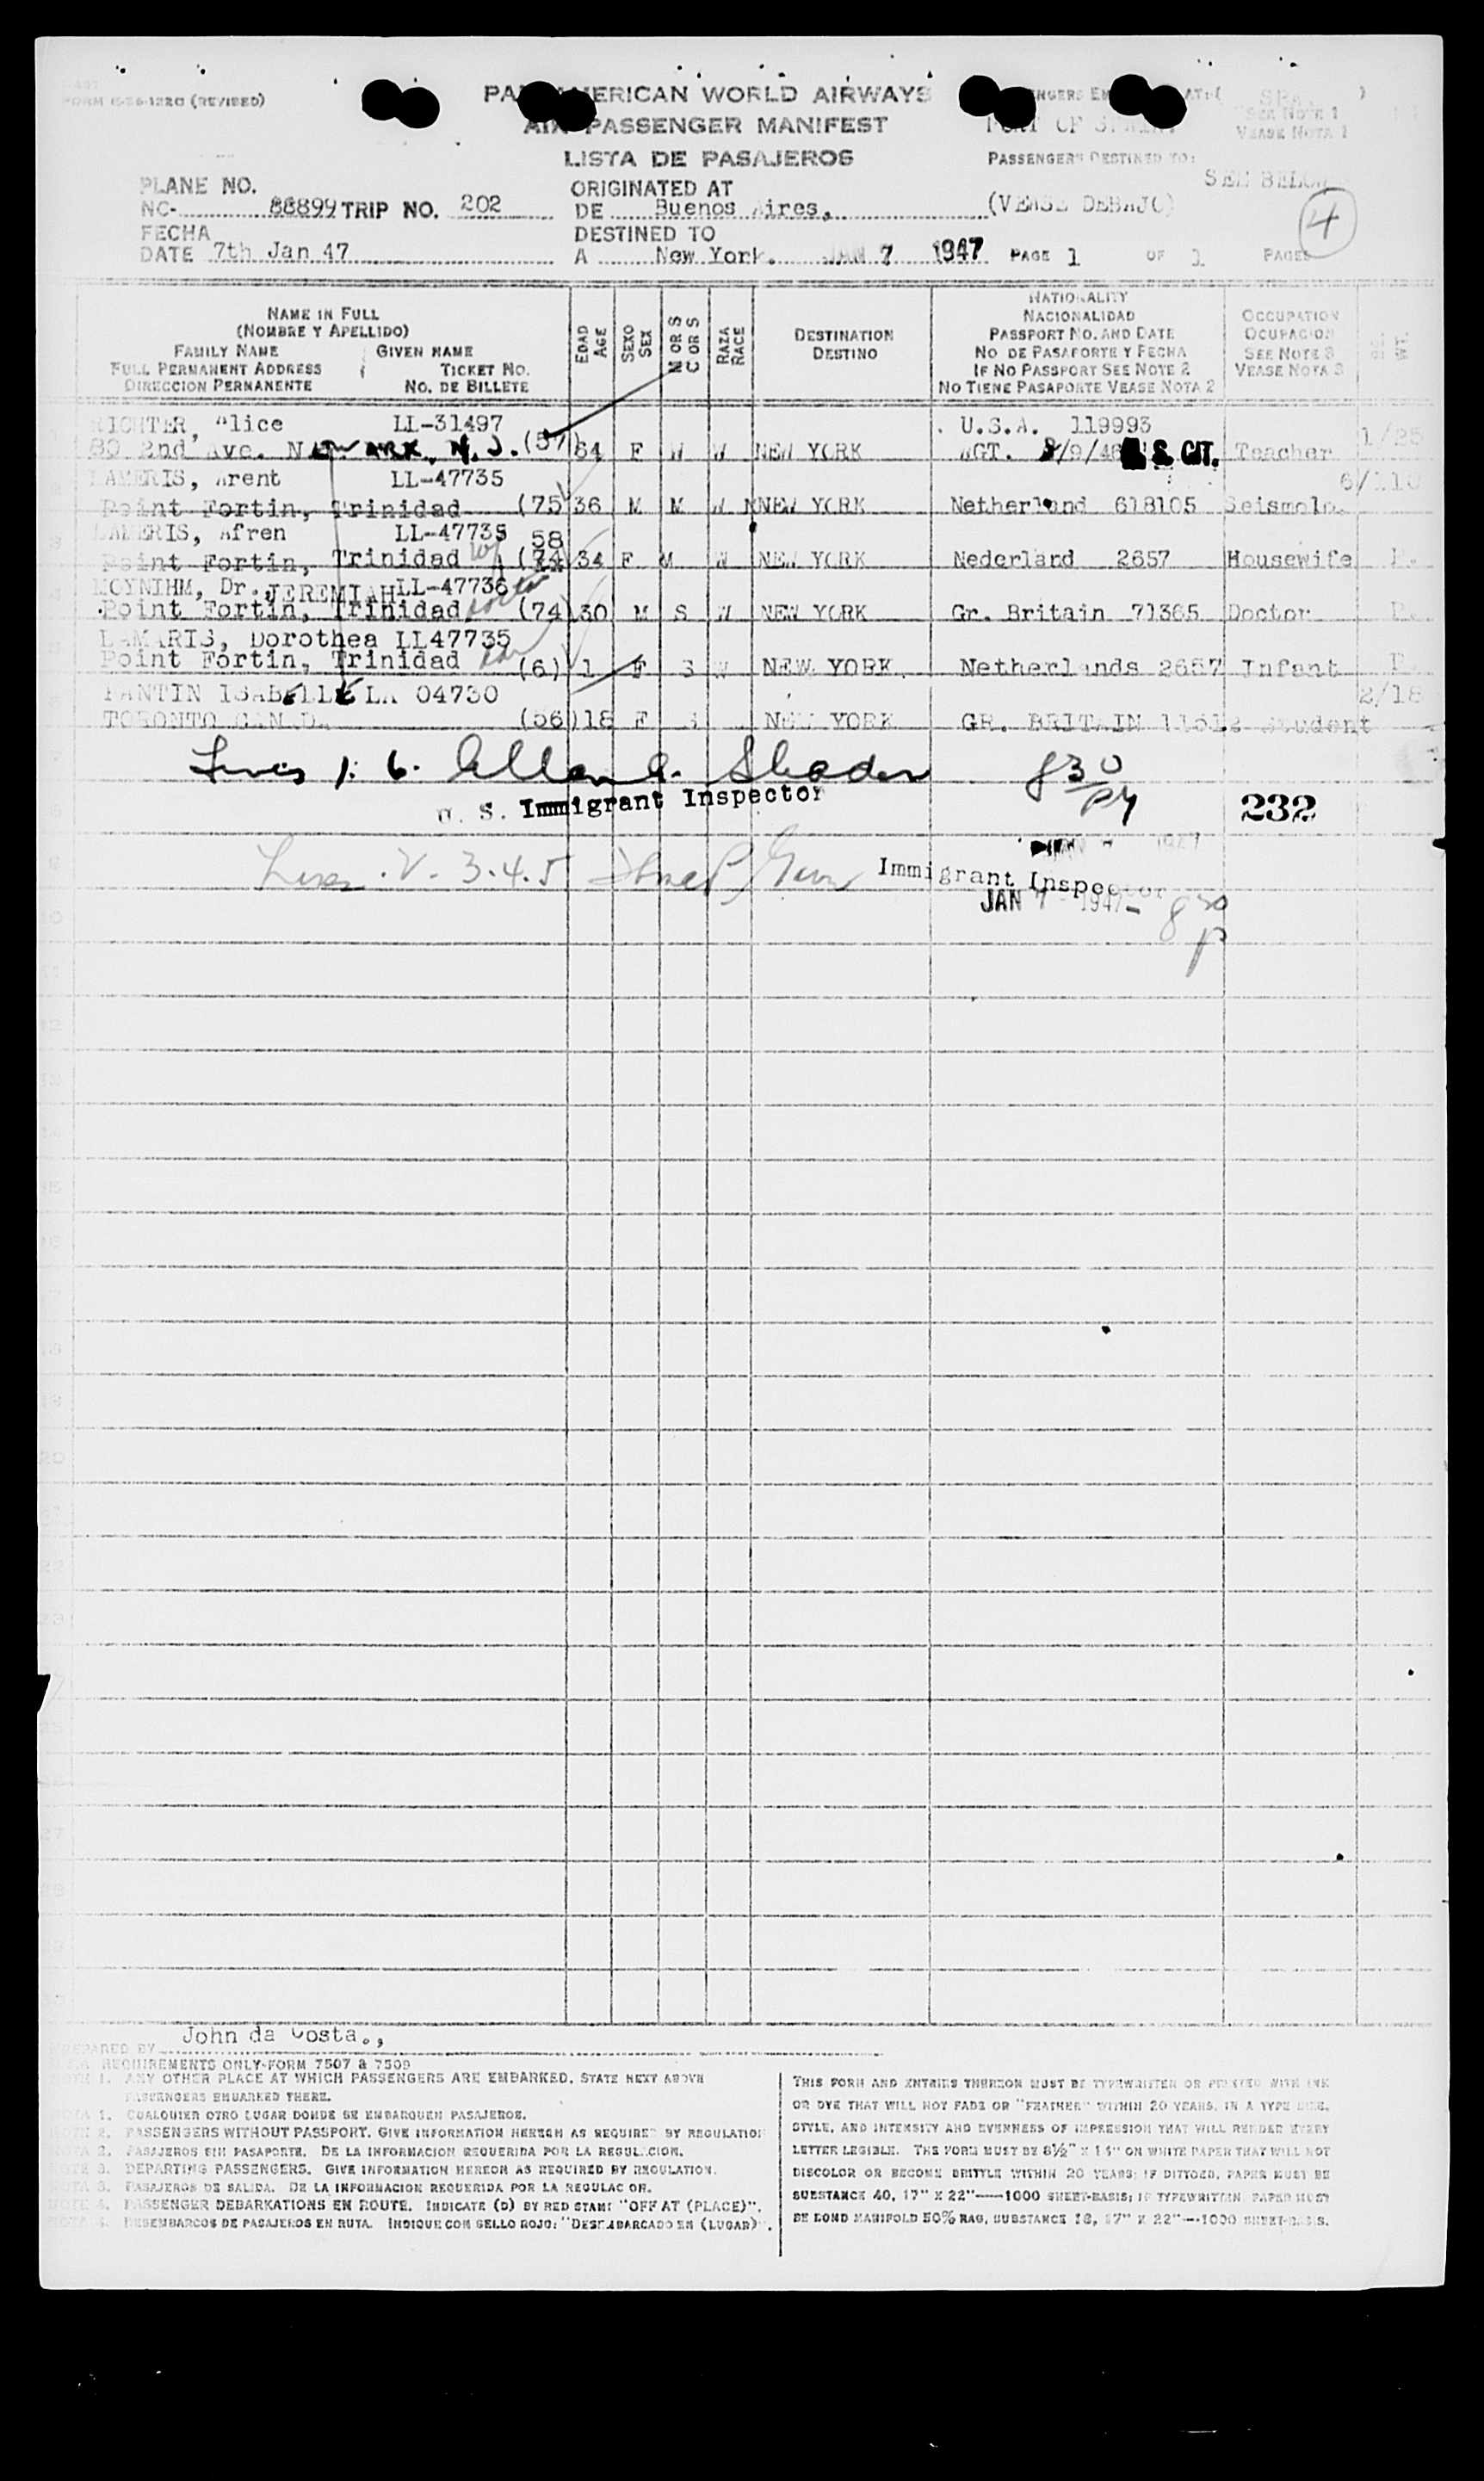 FORM (REVISED)
PAN AMERICAN WORLD AIRWAYS
AIR PASSENGER MANIFEST
LISTA DE PASAJEROS
PORT OF SPAIN.
SEE NOTE 1
VEASE NOTA 1
PASSENGERS DESTINED TO:
SEE BELOW
(VEASE DEBAJO)
4
PLANE NO.
NC- 88899 TRIP NO. 202
FECHA
DATE 7th Jan 47
ORIGINATED AT
DE Buenos Aires,
DESTINED TO
A New York. JAN 7 1947 PAGE 1 OF 1 PAGES
NAME IN FULL
(NOMBRE Y APELLIDO)
FAMILY NAME GIVEN NAME
FULL PERMANENT ADDRESS TICKET NO.
DIRECCION PERMANENTE NO. DE BILLETE
EDAD
AGE
SEXO
SEX
M OR S
C OR S
RAZA
RACE
DESTINATION
DESTINO
NATIONALITY
NACIONALIDAD
PASSPORT NO. AND DATE
NO DE PASAPORTE Y FECHA
IF NO PASSPORT SEE NOTE 2
NO TIENE PASAPORTE VEASE NOTA 2
OCCUPATION
OCUPACION
SEE NOTE 3
VEASE NOTA 3
RICHTER, Alice LL-31497 U.S.A. 119993
80 2nd Ave. NEWARK, N.J. (57) 64 F W W NEW YORK WGT. /9/46 U.S. CIT. Teacher 1/25
LAMERIS, Arent LL-47735 6/110
Point Fortin, Trinidad (75) 36 M M W NEW YORK Netherland 618105 Seismolo.
LAMERIS, Afren LL-47735 58
Point Fortin, Trinidad (74) 34 F M W NEW YORK Nederland 2657 Housewife
MOYNIHM, Dr. JEREMIAH LL-47736
Point Fortin, Trinidad (74) 30 M S W NEW YORK Gr. Britain 71365 Doctor
LAMARIS, Dorothea LL47735
Point Fortin, Trinidad (6) 1 F S W NEW YORK. Netherlands 2657 Infant
FANTIN ISABELLE LA 04730 2/18
TORONTO CANADA (56) 18 F S NEW YORK GR. BRITAIN Student
Lines 1. 6. Allan G. Shader 830 PM
U. S. Immigrant Inspector 232
Lines . 2. 3. 4. 5 Immigrant Inspector
JAN 7 - 1947 - 8 30 p
John da Costa.,
PREPARED BY
REQUIREMENTS ONLY-FORM 7507 & 7509
NOTE 1. ANY OTHER PLACE AT WHICH PASSENGERS ARE EMBARKED. STATE NEXT ABOVE
PASSENGERS EMBARKED THERE.
NOTA 1. CUALQUIER OTRO LUGAR DONDE SE EMBARQUEN PASAJEROS.
NOTE 2. PASSENGERS WITHOUT PASSPORT. GIVE INFORMATION HEREON AS REQUIRED BY REGULATION
NOTA 2. PASAJEROS SIN PASAPORTE. DE LA INFORMACION REQUERIDA POR LA REGULACION.
NOTE 3. DEPARTING PASSENGERS. GIVE INFORMATION HEREON AS REQUIRED BY REGULATION.
NOTA 3. PASAJEROS DE SALIDA. DE LA INFORMACION REQUERIDA POR LA REGULACION.
NOTE 4. PASSENGER DEBARKATIONS EN ROUTE. INDICATE (D) BY RED STAMP "OFF AT (PLACE)".
NOTA 4. DESEMBARCOS DE PASAJEROS EN RUTA. INDIQUE CON SELLO ROJO: "DESEMBARCADO EN (LUGAR)".
THIS FORM AND ENTRIES THEREON MUST BE TYPEWRITTEN OR PRINTED WITH INK
OR DYE THAT WILL NOT FADE OR "FEATHER" WITHIN 20 YEARS, IN A TYPE SIZE,
STYLE, AND INTENSITY AND EVENNESS OF IMPRESSION THAT WILL RENDER EVERY
LETTER LEGIBLE. THE FORM MUST BE 8½" X 14" ON WHITE PAPER THAT WILL NOT
DISCOLOR OR BECOME BRITTLE WITHIN 20 YEARS; IF DITTOED, PAPER MUST BE
SUBSTANCE 40, 17" X 22"—1000 SHEET-BASIS; IF TYPEWRITTEN PAPER MUST
BE BOND MANIFOLD 50% RAG, SUBSTANCE 16, 17" X 22"—1000 SHEET-BASIS.